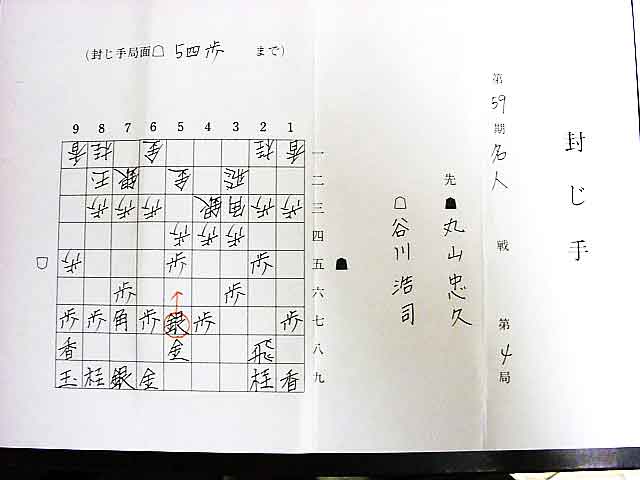 封じ手
第59期名人戦 第4局
先 ☗丸山忠久
☖谷川浩司
(封じ手局面☖5四歩 まで)
9 8 7 6 5 4 3 2 1
香 桂 金 桂 香 一
玉 銀 金 飛 二
歩 歩 歩 銀 角 歩 歩 三
歩 歩 歩 四
☖ 歩 歩 歩 五 ☗
歩 歩 六
歩 歩 角 歩 銀 歩 歩 七
香 金 飛 八
玉 桂 銀 金 桂 香 九